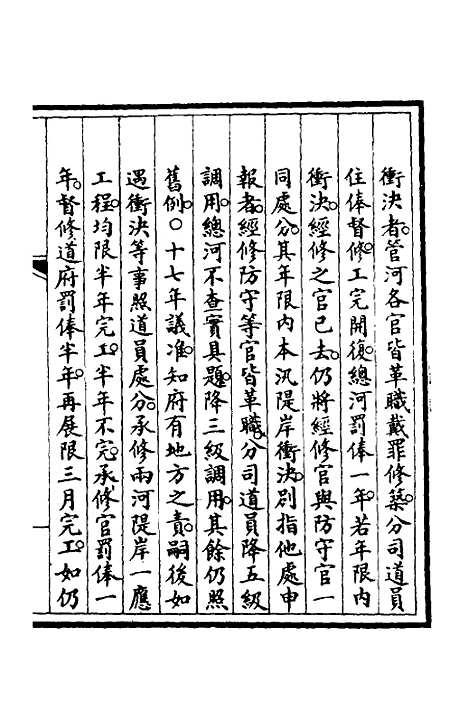 衝決者。管河各官皆革職戴罪修築。分司道員
住俸督修。工完開復。總河罰俸一年。若年限內
衝決。經修之官已去。仍將經修官與防守官一
同處分。其年限內本汛隄岸衝決。別指他處申
報者。經修防守等官皆革職。分司道員降五級
調用。總河不查實具題。降三級調用。其餘仍照
舊例。○十七年議准。知府有地方之責。嗣後如
遇衝決等事。照道員處分。承修兩河隄岸一應
工程。均限半年完工。半年不完。承修官罰俸一
年。督修道府罰俸半年。再展限三月完工。如仍